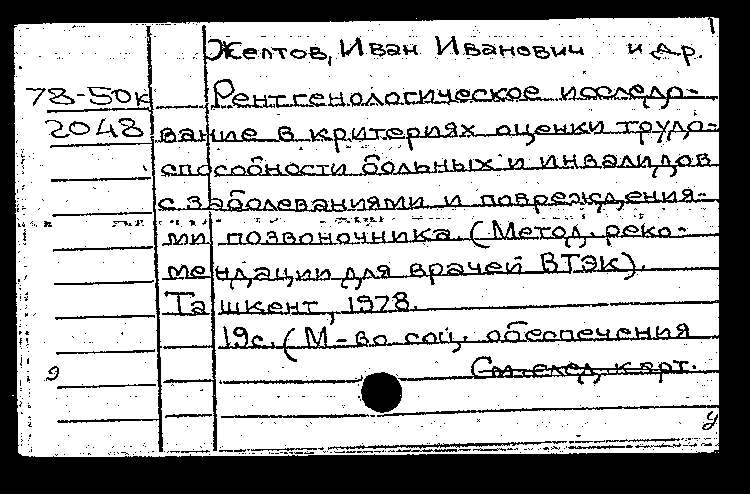 Желтов, Иван Иванович и др.
78-50к Рентгенологическое исследо-
2048 вание в критериях оценки трудо-
способности больных и инвалидов
с заболеваниями и повреждения-
ми позвоночника. (Метод. реко-
мендации для врачей ВТЭК).
Ташкент, 1978.
19с. (М-во соц. обеспечения
См. след. карт.
9
у